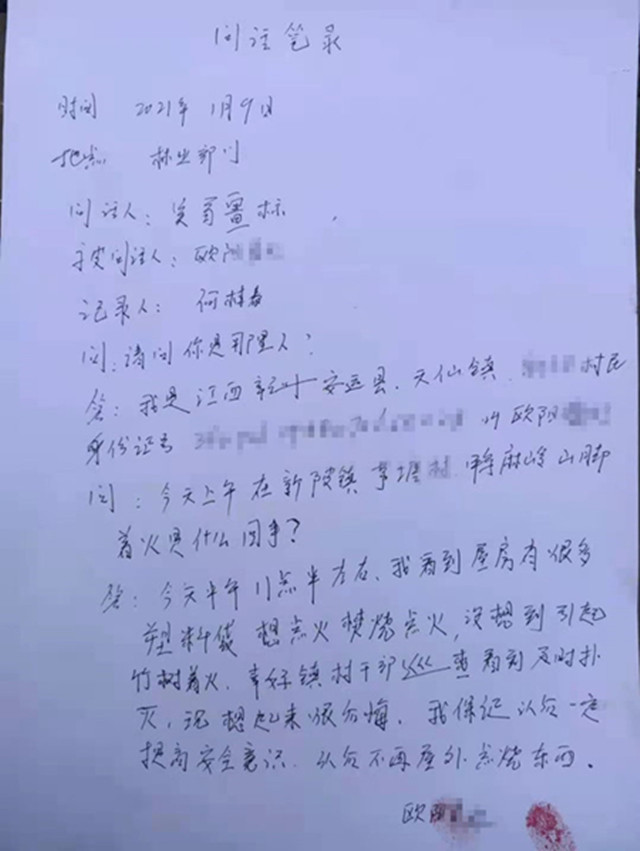 问话笔录
时间 2021年1月9日
地点 林业部门
问话人：
被问话人：欧阳
记录人：何桂春
问：请问你是那里人？
答：我是江西赣州安远县、天仙镇 村民
身份证号 欧阳
问：今天上午在新陂镇 村 麻岭山脚
着火是什么回事？
答：今天中午11点半左右、我看到屋房有很多
塑料袋想点火焚烧点火，没想到引起
竹树着火、幸好镇村干部巡查看到及时扑
灭，现想起来很后悔、我保证以后一定
提高安全意识、以后不再屋外点烧东西。
欧阳